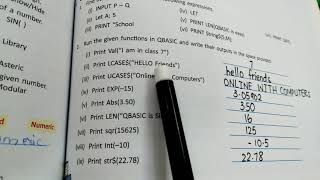 low/Hide
SIN( )
ed of
a number.
given
Modular
Numeric
Numeric
following expressions.
(i) INPUT P – Q
(ii) Let A; 5
(iii) PRINT "School
(iv)
(v) PRINT LEN(QBASIC is
(vi) PRINT String(5,M);
2. Run the given functions in QBASIC and write their outputs in the space provided.
(i) Print Val("I am in class 7")
(ii) Print LCASE$("HELLO Friends")
(iii) Print UCASE$("Online Computers")
(iv) Print EXP(–15)
(v) Print Abs(3.50)
(vi) Print LEN("QBASIC is
(vii) Print sqr(15625)
(viii) Print Int(–10)
(ix) Print str$(22.78)
7
hello friends
ONLINE WITH COMPUTERS
3.50
16
125
-10.5
22.78